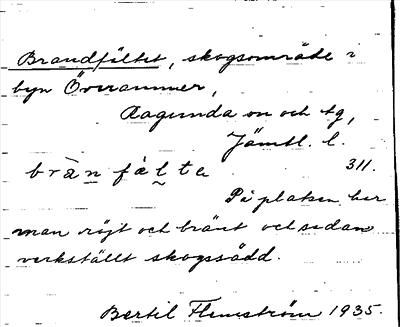 Brandfältet, skogsområde i
byn Överammer,
Ragunda sn och tg,
Jämtl. l.
brànfæ̀lte 311.
På platsen har
man röjt och bränt och sedan
verkställt skogssådd.
Bertil Flemström 1935.